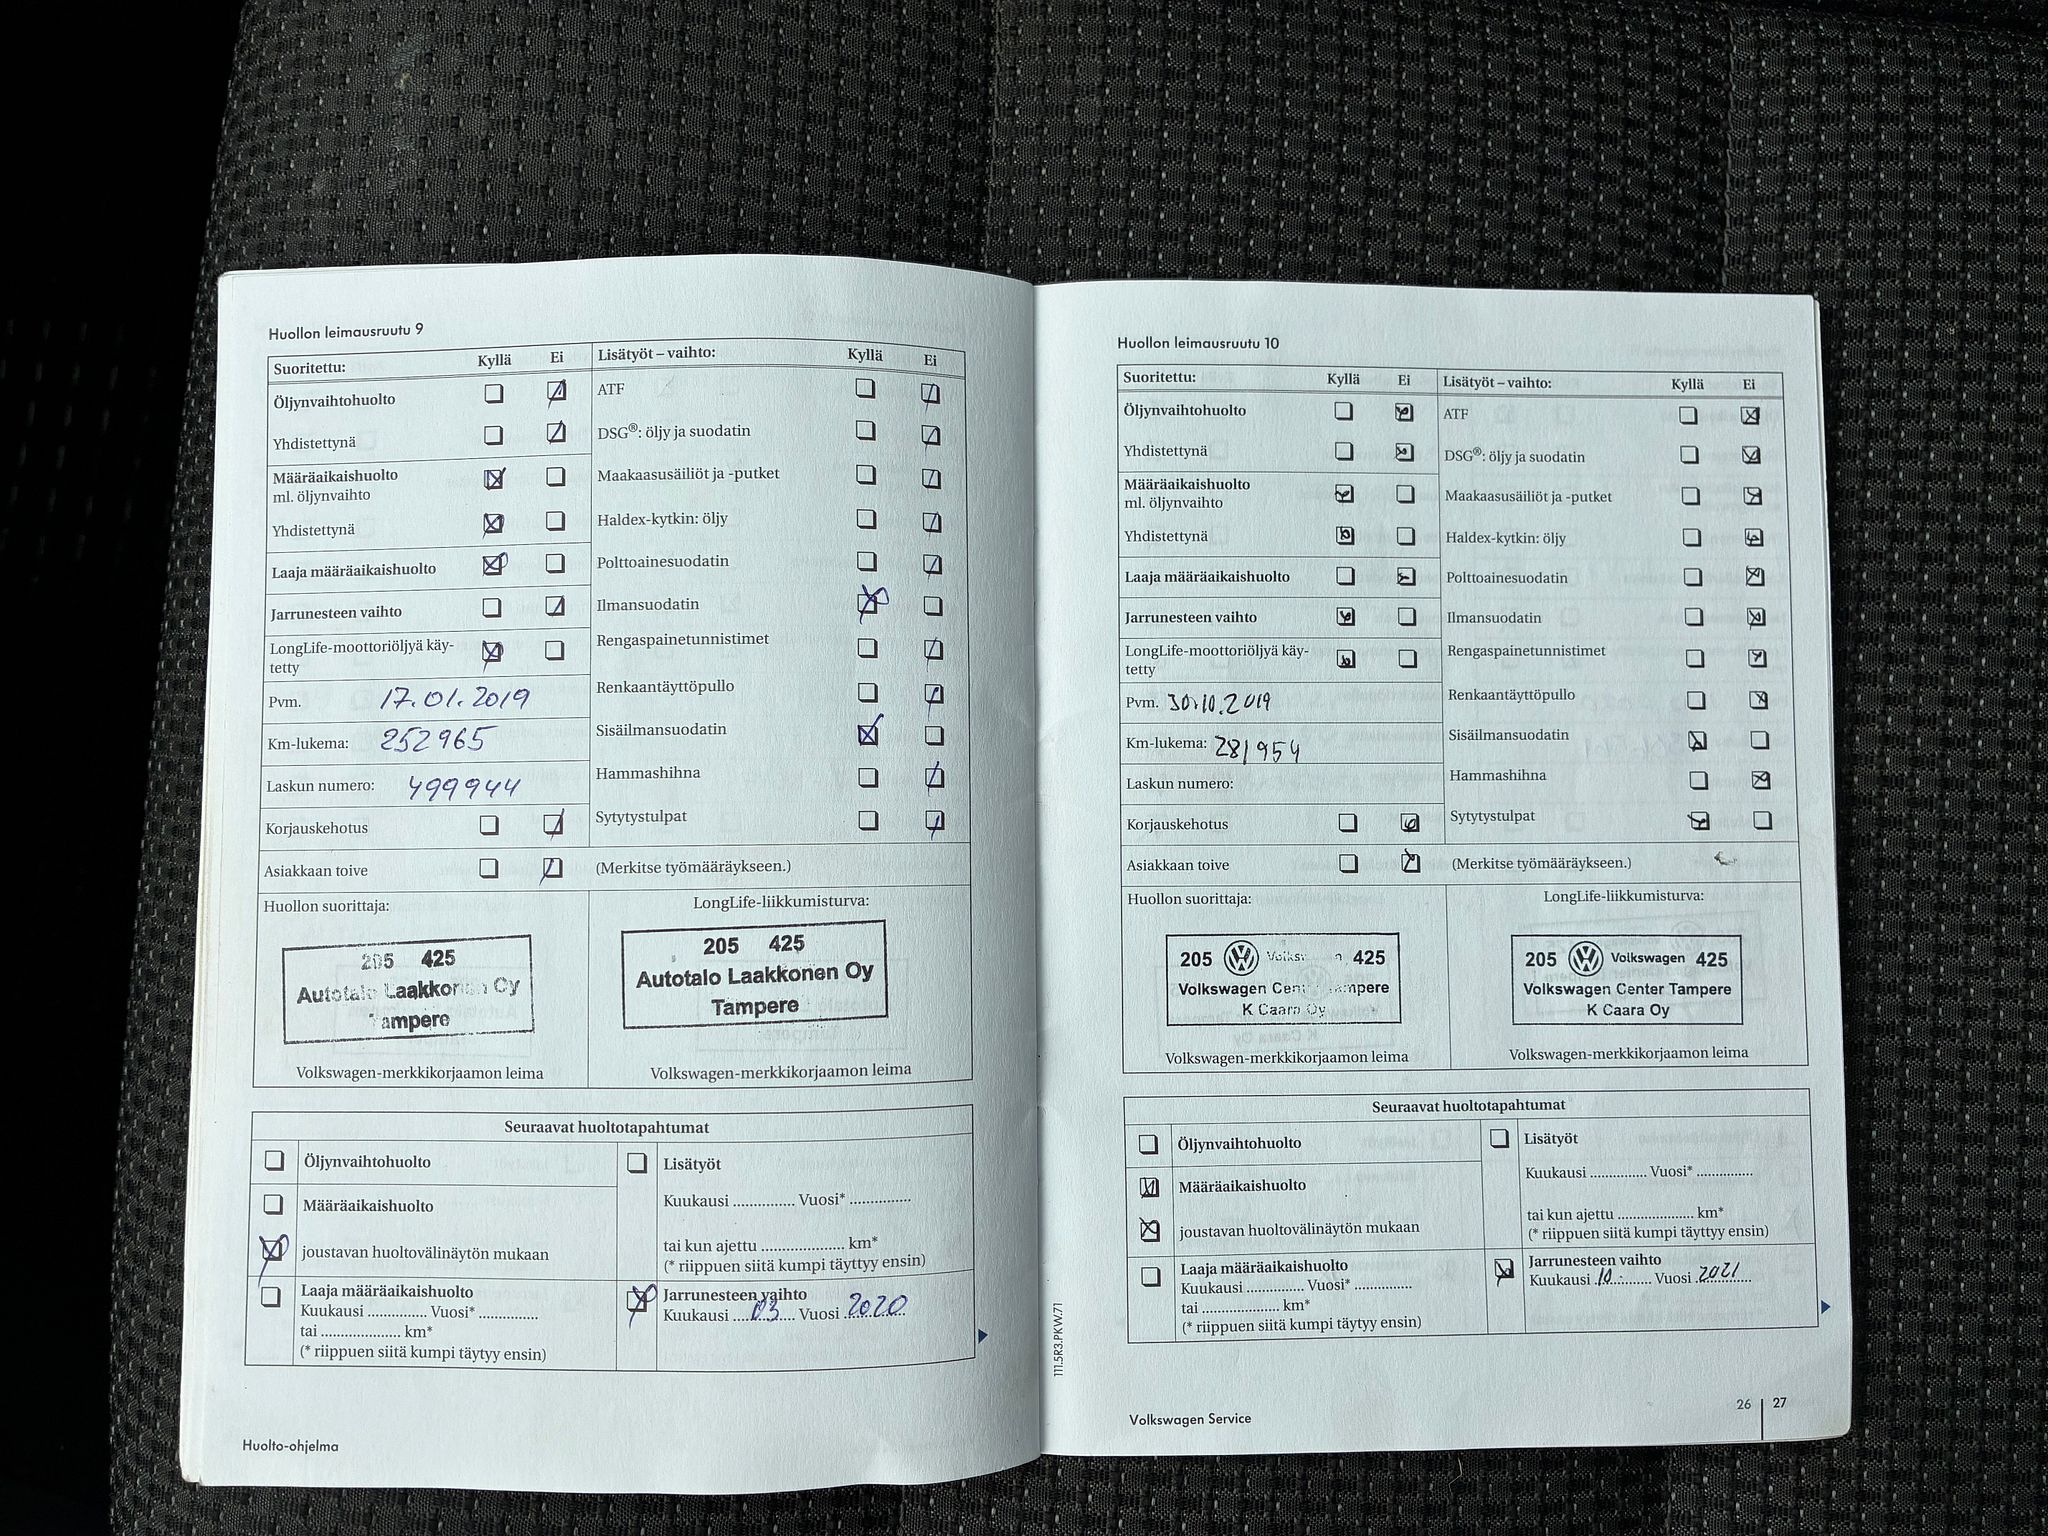 Huollon leimausruutu 9
Suoritettu: Kyllä Ei
Öljynvaihtohuolto
Yhdistettynä
Määräaikaishuolto
ml. öljynvaihto
Yhdistettynä
Laaja määräaikaishuolto
Jarrunesteen vaihto
LongLife-moottoriöljyä käy-
tetty
Pvm. 17.01.2019
Km-lukema: 252965
Laskun numero: 499944
Korjauskehotus
Asiakkaan toive
Lisätyöt – vaihto: Kyllä Ei
ATF
DSG®: öljy ja suodatin
Maakaasusäiliöt ja -putket
Haldex-kytkin: öljy
Polttoainesuodatin
Ilmansuodatin
Rengaspainetunnistimet
Renkaantäyttöpullo
Sisäilmansuodatin
Hammashihna
Sytytystulpat
(Merkitse työmääräykseen.)
Huollon suorittaja:
205 425
Autotalo Laakkonen Oy
Tampere
Volkswagen-merkkikorjaamon leima
LongLife-liikkumisturva:
205 425
Autotalo Laakkonen Oy
Tampere
Volkswagen-merkkikorjaamon leima
Seuraavat huoltotapahtumat
Öljynvaihtohuolto
Määräaikaishuolto
joustavan huoltovälinäytön mukaan
Laaja määräaikaishuolto
Kuukausi .............. Vuosi* ..............
tai .................... km*
(* riippuen siitä kumpi täytyy ensin)
Lisätyöt
Kuukausi .............. Vuosi* ..............
tai kun ajettu .................... km*
(* riippuen siitä kumpi täyttyy ensin)
Jarrunesteen vaihto
Kuukausi 03 Vuosi 2020
Huolto-ohjelma
Huollon leimausruutu 10
Suoritettu: Kyllä Ei
Öljynvaihtohuolto
Yhdistettynä
Määräaikaishuolto
ml. öljynvaihto
Yhdistettynä
Laaja määräaikaishuolto
Jarrunesteen vaihto
LongLife-moottoriöljyä käy-
tetty
Pvm. 30.10.2019
Km-lukema: 281954
Laskun numero:
Korjauskehotus
Asiakkaan toive
Lisätyöt – vaihto: Kyllä Ei
ATF
DSG®: öljy ja suodatin
Maakaasusäiliöt ja -putket
Haldex-kytkin: öljy
Polttoainesuodatin
Ilmansuodatin
Rengaspainetunnistimet
Renkaantäyttöpullo
Sisäilmansuodatin
Hammashihna
Sytytystulpat
(Merkitse työmääräykseen.)
Huollon suorittaja:
205 Volkswagen 425
Volkswagen Center Tampere
K Caara Oy
Volkswagen-merkkikorjaamon leima
LongLife-liikkumisturva:
205 Volkswagen 425
Volkswagen Center Tampere
K Caara Oy
Volkswagen-merkkikorjaamon leima
Seuraavat huoltotapahtumat
Öljynvaihtohuolto
Määräaikaishuolto
joustavan huoltovälinäytön mukaan
Laaja määräaikaishuolto
Kuukausi .............. Vuosi* ..............
tai .................... km*
(* riippuen siitä kumpi täytyy ensin)
Lisätyöt
Kuukausi .............. Vuosi* ..............
tai kun ajettu .................... km*
(* riippuen siitä kumpi täyttyy ensin)
Jarrunesteen vaihto
Kuukausi 10 Vuosi 2021
111.5R3.PKW.71
Volkswagen Service
26 27